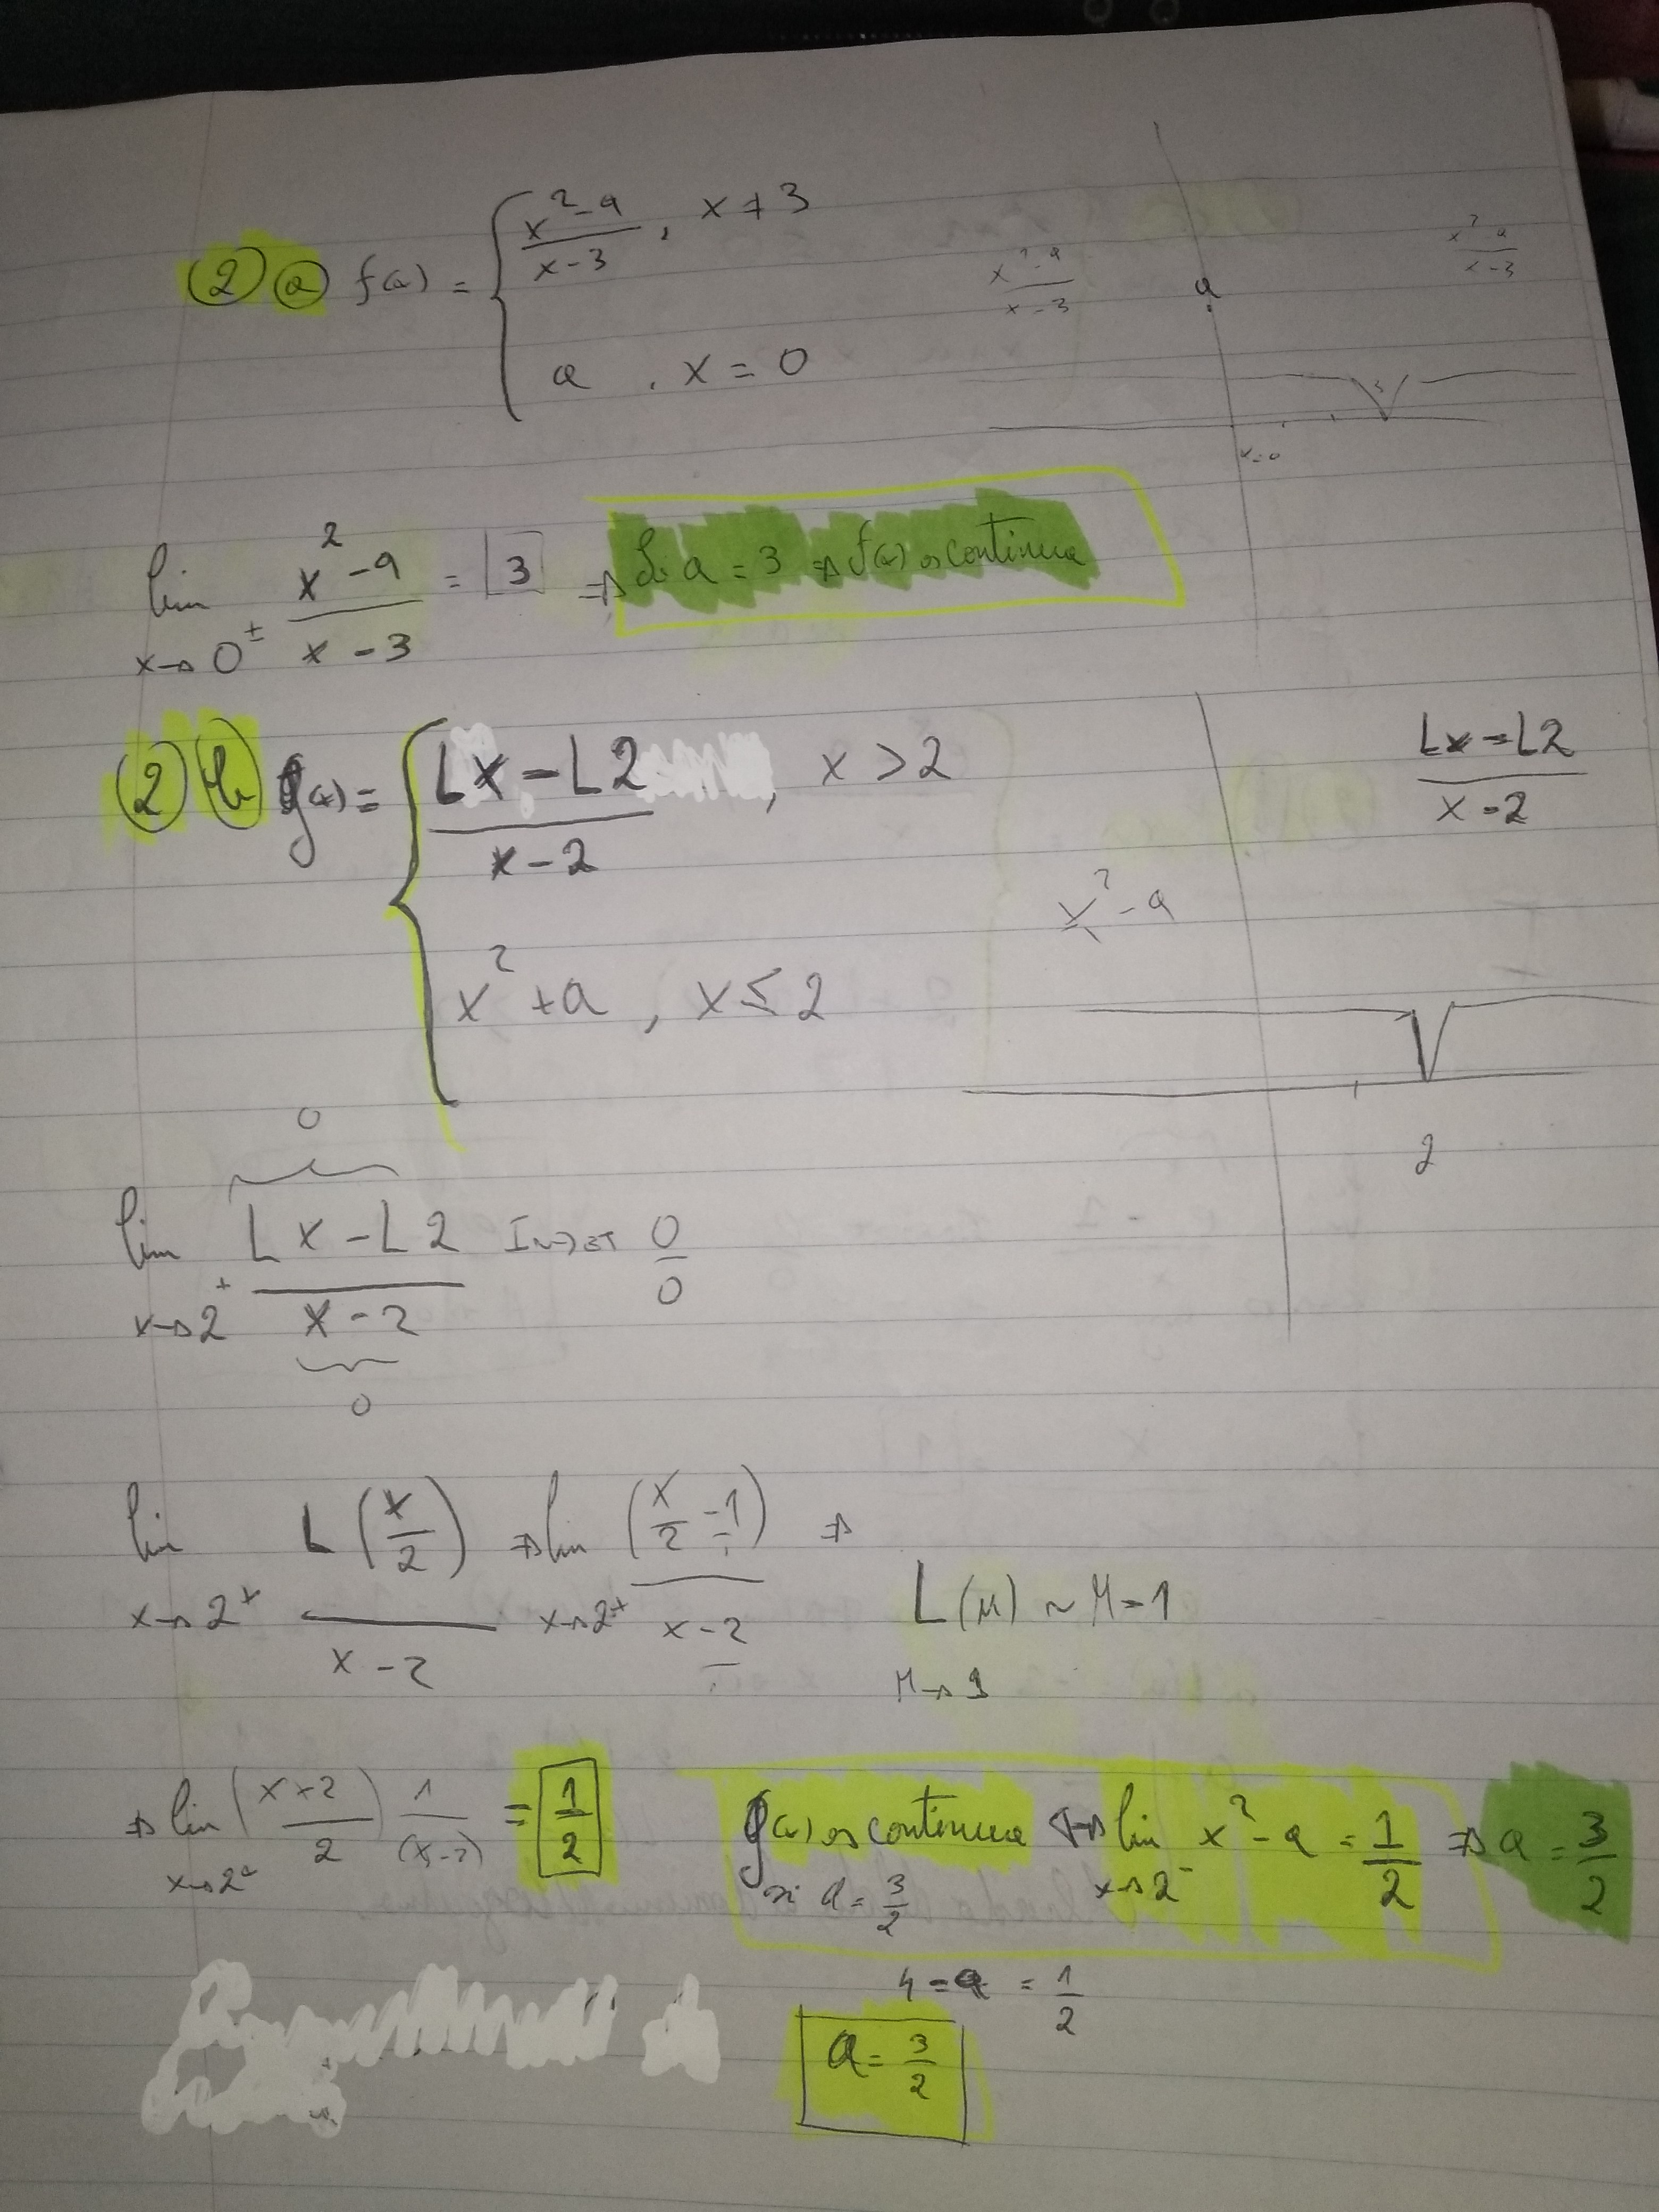 ② ⓐ f(x) = { x²-9 / x-3 , x ≠ 3
a , x = 0
x²-9 / x-3
a
x²-9 / x-3
3
x=0
lim x→0± x²-9 / x-3 = 3 ⇒ Si a = 3 ⇒ f(x) es continua
② ⓑ g(x) = { Lx-L2 / x-2 , x > 2
x²+a , x ≤ 2
Lx-L2 / x-2
x²-a
2
0
lim x→2+ Lx-L2 / x-2 INDET 0/0
0
lim x→2+ L(x/2) / x-2 ⇒ lim x→2+ (x/2 -1) / x-2 ⇒
L(μ) ~ μ-1
μ→1
⇒ lim x→2+ (x-2 / 2) 1/(x-2) = 1/2
g(x) es continua ⇔ lim x→2- x²-a = 1/2 ⇒ a = 3/2
si a = 3/2
4-a = 1/2
a = 3/2